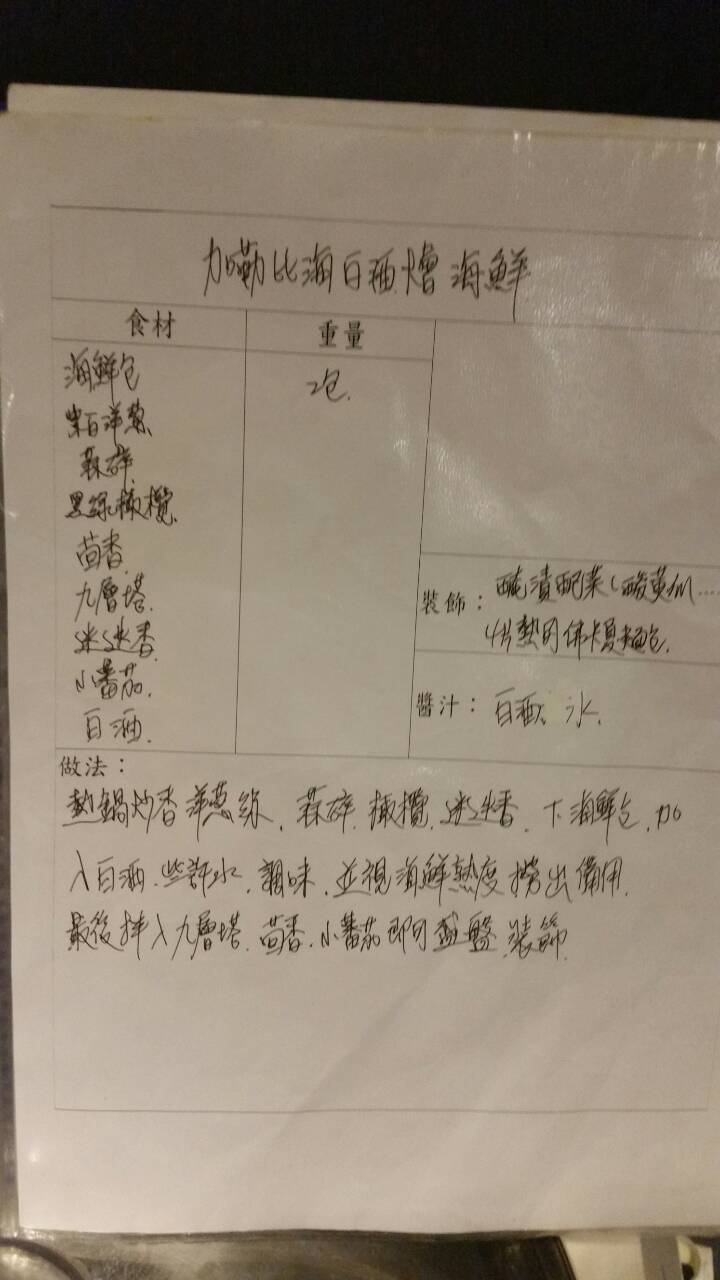 加勒比海白酒燴海鮮
食材
重量
海鮮包
2包.
紫白洋蔥.
蒜碎.
黑綠橄欖.
茴香.
九層塔.
迷迭香.
小番茄.
白酒.
裝飾：醃漬配菜(酸黃瓜.....
4片墊用佛卡夏麵包.
醬汁：白酒、水.
做法：
熱鍋炒香洋蔥絲、蒜碎.橄欖.迷迭香.下海鮮包.加
入白酒.些許水.調味.並視海鮮熟度撈出備用.
最後拌入九層塔.茴香.小番茄即可盛盤.裝飾.